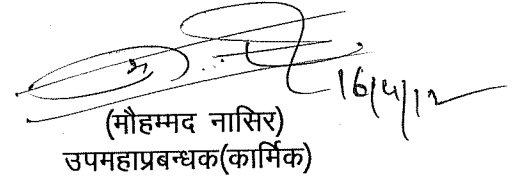 16/4/12
(मौहम्मद नासिर)
उपमहाप्रबन्धक(कार्मिक)